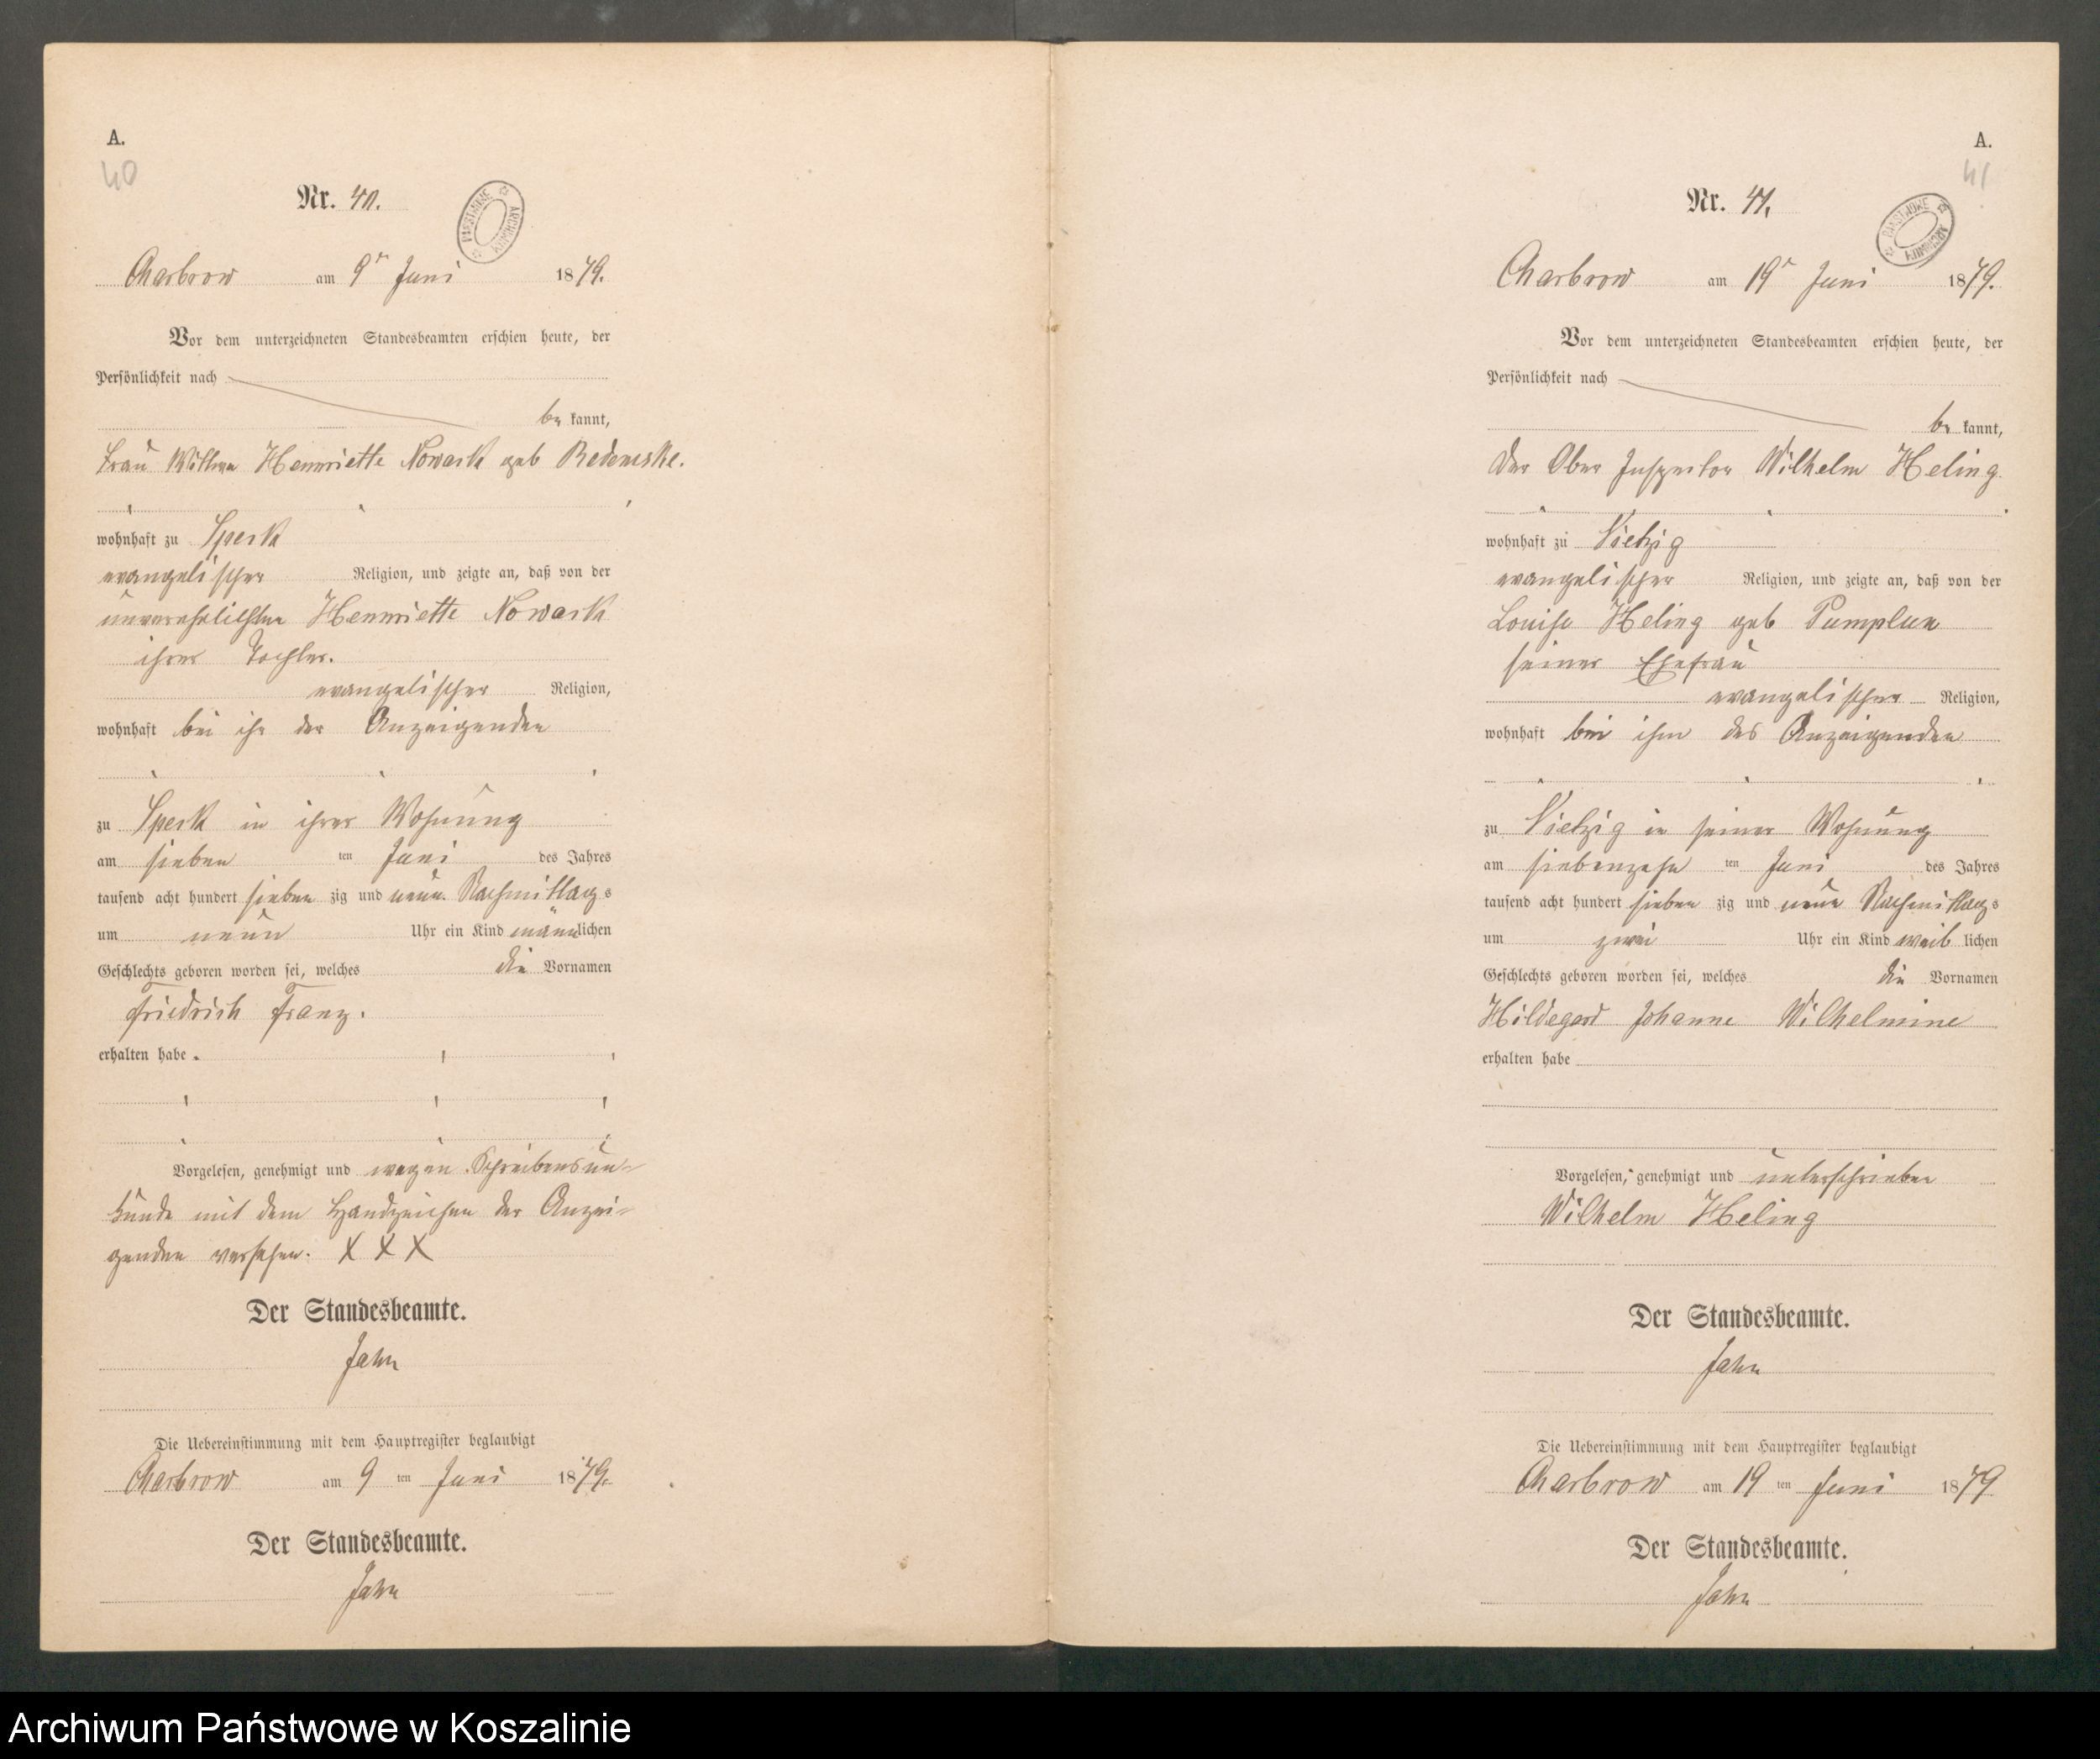 A.
40
Nr. 40.
PAŃSTWOWE ARCHIWUM
Charbrow am 9ᵗ Juni 1879.
Vor dem unterzeichneten Standesbeamten erschien heute, der
Persönlichkeit nach
be kannt,
Frau Wittwe Henriette Nowack geb
wohnhaft zu Speck
evangelischer Religion, und zeigte an, daß von der
unverehelichten Henriette Nowack
ihrer Tochter.
evangelischer Religion,
wohnhaft bei ihr der Anzeigenden
zu Speck in ihrer Wohnung
am sieben ten Juni des Jahres
tausend acht hundert sieben zig und neun Nachmittags
um neun Uhr ein Kind männlichen
Geschlechts geboren worden sei, welches die Vornamen
Friedrich Franz.
erhalten habe.
Vorgelesen, genehmigt und wegen Schreibensun-
kunde mit dem Handzeichen der Anzei-
genden versehen. X X X
Der Standesbeamte.
Jahn
Die Uebereinstimmung mit dem Hauptregister beglaubigt
Charbrow am 9 ten Juni 1879.
Der Standesbeamte.
Jahn
A.
41
Nr. 41.
PAŃSTWOWE ARCHIWUM
Charbrow am 19ᵗ Juni 1879.
Vor dem unterzeichneten Standesbeamten erschien heute, der
Persönlichkeit nach
be kannt,
Der Ober Inspector Wilhelm Heling
wohnhaft zu Vietzig
evangelischer Religion, und zeigte an, daß von der
Louise Heling geb Pumplun
seiner Ehefrau
evangelischer Religion,
wohnhaft bei ihm des Anzeigenden
zu Vietzig in seiner Wohnung
am siebenzehn ten Juni des Jahres
tausend acht hundert sieben zig und neun Nachmittags
um zwei Uhr ein Kind weib lichen
Geschlechts geboren worden sei, welches die Vornamen
Hildegard Johanne Wilhelmine
erhalten habe
Vorgelesen, genehmigt und unterschrieben
Wilhelm Heling
Der Standesbeamte.
Jahn
Die Uebereinstimmung mit dem Hauptregister beglaubigt
Charbrow am 19 ten Juni 1879
Der Standesbeamte.
Jahn
Archiwum Państwowe w Koszalinie